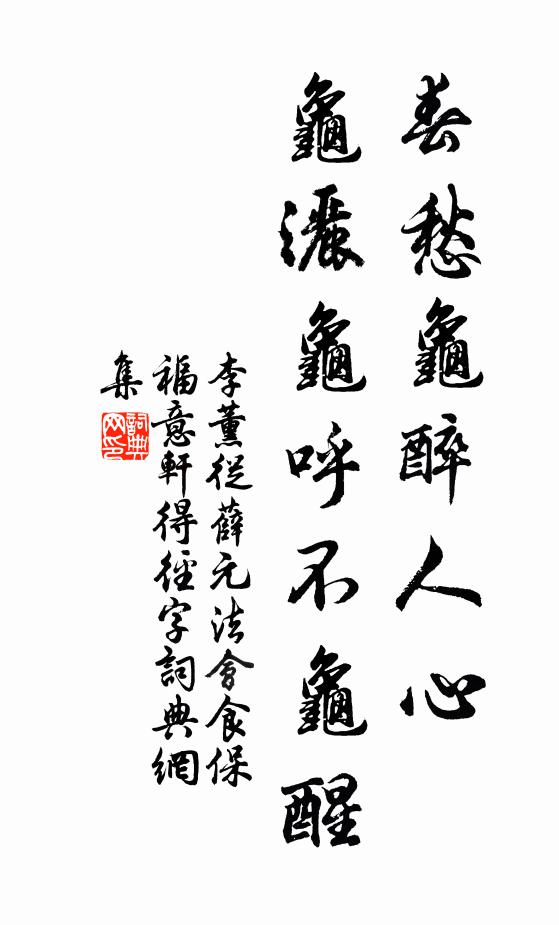 春愁龜醉人心
龜灑龜呼不龜醒
李薰從薛元法會食保
福意軒得徑字詞典網
集
詞典
网印